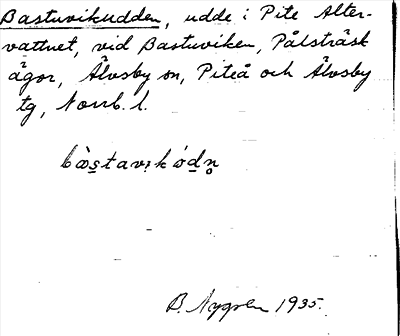 Bastuvikudden, udde i Pite Alter-
vattnet, vid Bastuviken, Pålsträsk
ägor, Älvsby sn, Piteå och Älvsby
tg, Norrb. l.
B. Nygren 1935.